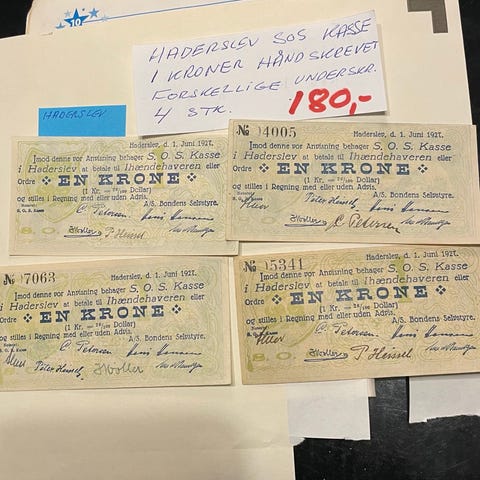 10
HADERSLEV SOS KASSE
1 KRONER HÅNDSKREVET
FORSKELLIGE UNDERSKR.
4 STK.
180,-
HADERSLEV
Haderslev, d. 1. Juni 1927.
Imod denne vor Anvisning behager S. O. S. Kasse
i Haderslev at betale til Ihændehaveren eller
Ordre EN KRONE
(1 Kr. = 26/100 Dollar)
og stilles i Regning med eller uden Advis.
A/S. Bondens Selvstyre.
C. Petersen
P Heissel
№ 04005
Haderslev, d. 1. Juni 1927.
Imod denne vor Anvisning behager S. O. S. Kasse
i Haderslev at betale til Ihændehaveren eller
Ordre EN KRONE
(1 Kr. = 26/100 Dollar)
og stilles i Regning med eller uden Advis.
A/S. Bondens Selvstyre.
Peter Heissel
C Petersen
№ 07063
Haderslev, d. 1. Juni 1927.
Imod denne vor Anvisning behager S. O. S. Kasse
i Haderslev at betale til Ihændehaveren eller
Ordre EN KRONE
(1 Kr. = 26/100 Dollar)
og stilles i Regning med eller uden Advis.
A/S. Bondens Selvstyre.
C. Petersen
Peter Heissel
№ 05341
Haderslev, d. 1. Juni 1927.
Imod denne vor Anvisning behager S. O. S. Kasse
i Haderslev at betale til Ihændehaveren eller
Ordre EN KRONE
(1 Kr. = 26/100 Dollar)
og stilles i Regning med eller uden Advis.
A/S. Bondens Selvstyre.
C. Petersen
P Heissel